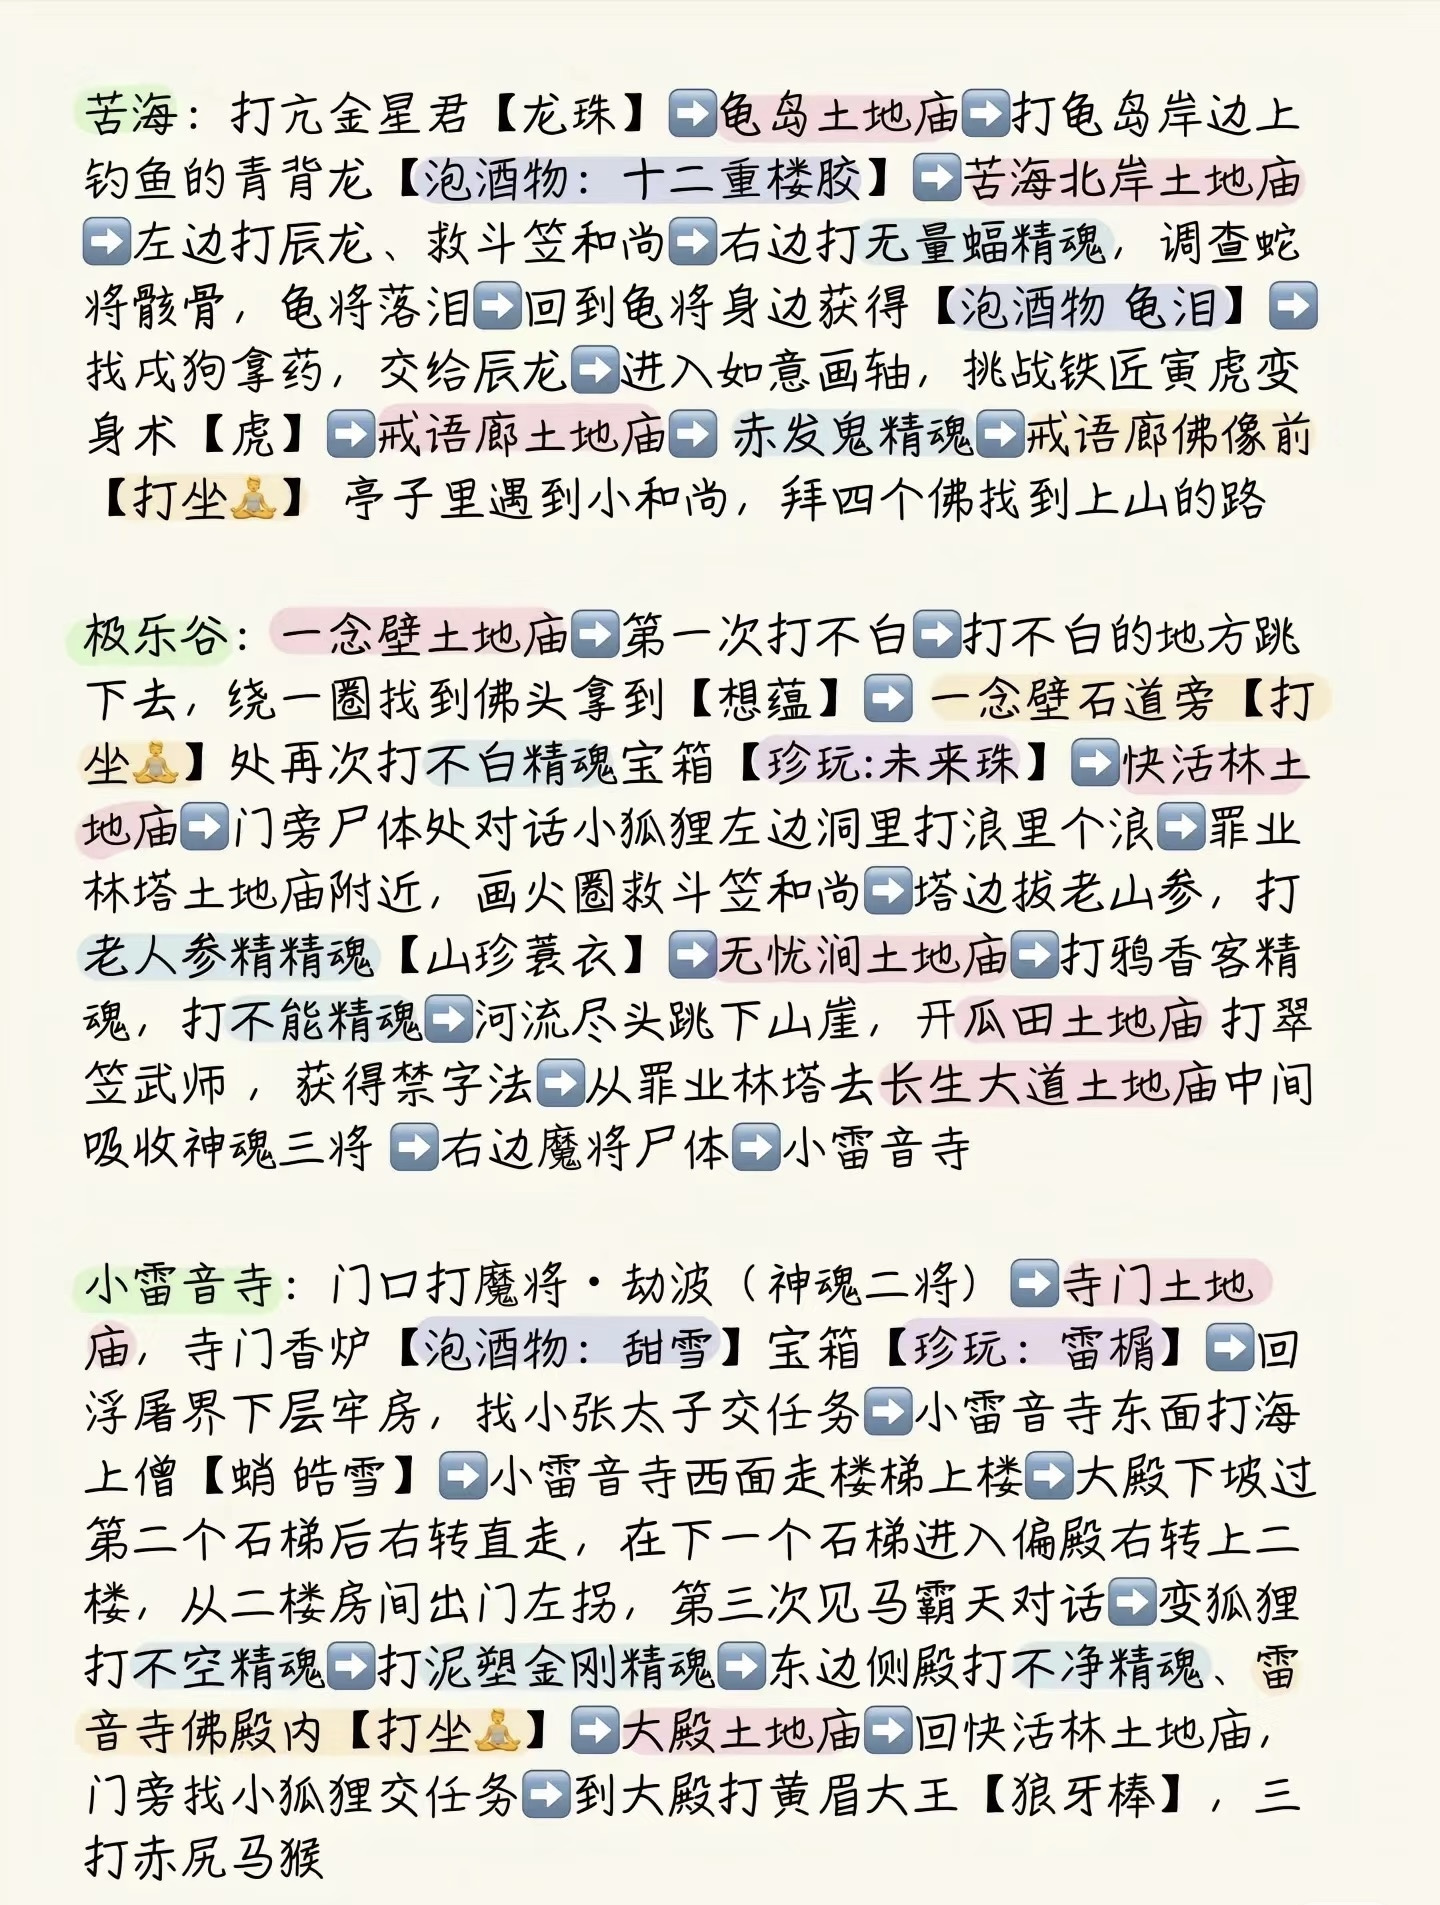 苦海：打亢金星君【龙珠】➡️龟岛土地庙➡️打龟岛岸边上
钓鱼的青背龙【泡酒物：十二重楼胶】➡️苦海北岸土地庙
➡️左边打辰龙、救斗笠和尚➡️右边打无量蝠精魂，调查蛇
将骸骨，龟将落泪➡️回到龟将身边获得【泡酒物 龟泪】➡️
找戌狗拿药，交给辰龙➡️进入如意画轴，挑战铁匠寅虎变
身术【虎】➡️戒语廊土地庙➡️ 赤发鬼精魂➡️戒语廊佛像前
【打坐🧘】 亭子里遇到小和尚，拜四个佛找到上山的路
极乐谷：一念壁土地庙➡️第一次打不白➡️打不白的地方跳
下去，绕一圈找到佛头拿到【想蕴】➡️ 一念壁石道旁【打
坐🧘】处再次打不白精魂宝箱【珍玩:未来珠】➡️快活林土
地庙➡️门旁尸体处对话小狐狸左边洞里打浪里个浪➡️罪业
林塔土地庙附近，画火圈救斗笠和尚➡️塔边拔老山参，打
老人参精精魂【山珍蓑衣】➡️无忧涧土地庙➡️打鸦香客精
魂，打不能精魂➡️河流尽头跳下山崖，开瓜田土地庙 打翠
笠武师 ，获得禁字法➡️从罪业林塔去长生大道土地庙中间
吸收神魂三将 ➡️右边魔将尸体➡️小雷音寺
小雷音寺：门口打魔将·劫波（神魂二将）➡️寺门土地
庙，寺门香炉【泡酒物：甜雪】宝箱【珍玩：雷榍】➡️回
浮屠界下层牢房，找小张太子交任务➡️小雷音寺东面打海
上僧【蛸 皓雪】➡️小雷音寺西面走楼梯上楼➡️大殿下坡过
第二个石梯后右转直走，在下一个石梯进入偏殿右转上二
楼，从二楼房间出门左拐，第三次见马霸天对话➡️变狐狸
打不空精魂➡️打泥塑金刚精魂➡️东边侧殿打不净精魂、雷
音寺佛殿内【打坐🧘】➡️大殿土地庙➡️回快活林土地庙，
门旁找小狐狸交任务➡️到大殿打黄眉大王【狼牙棒】，三
打赤尻马猴